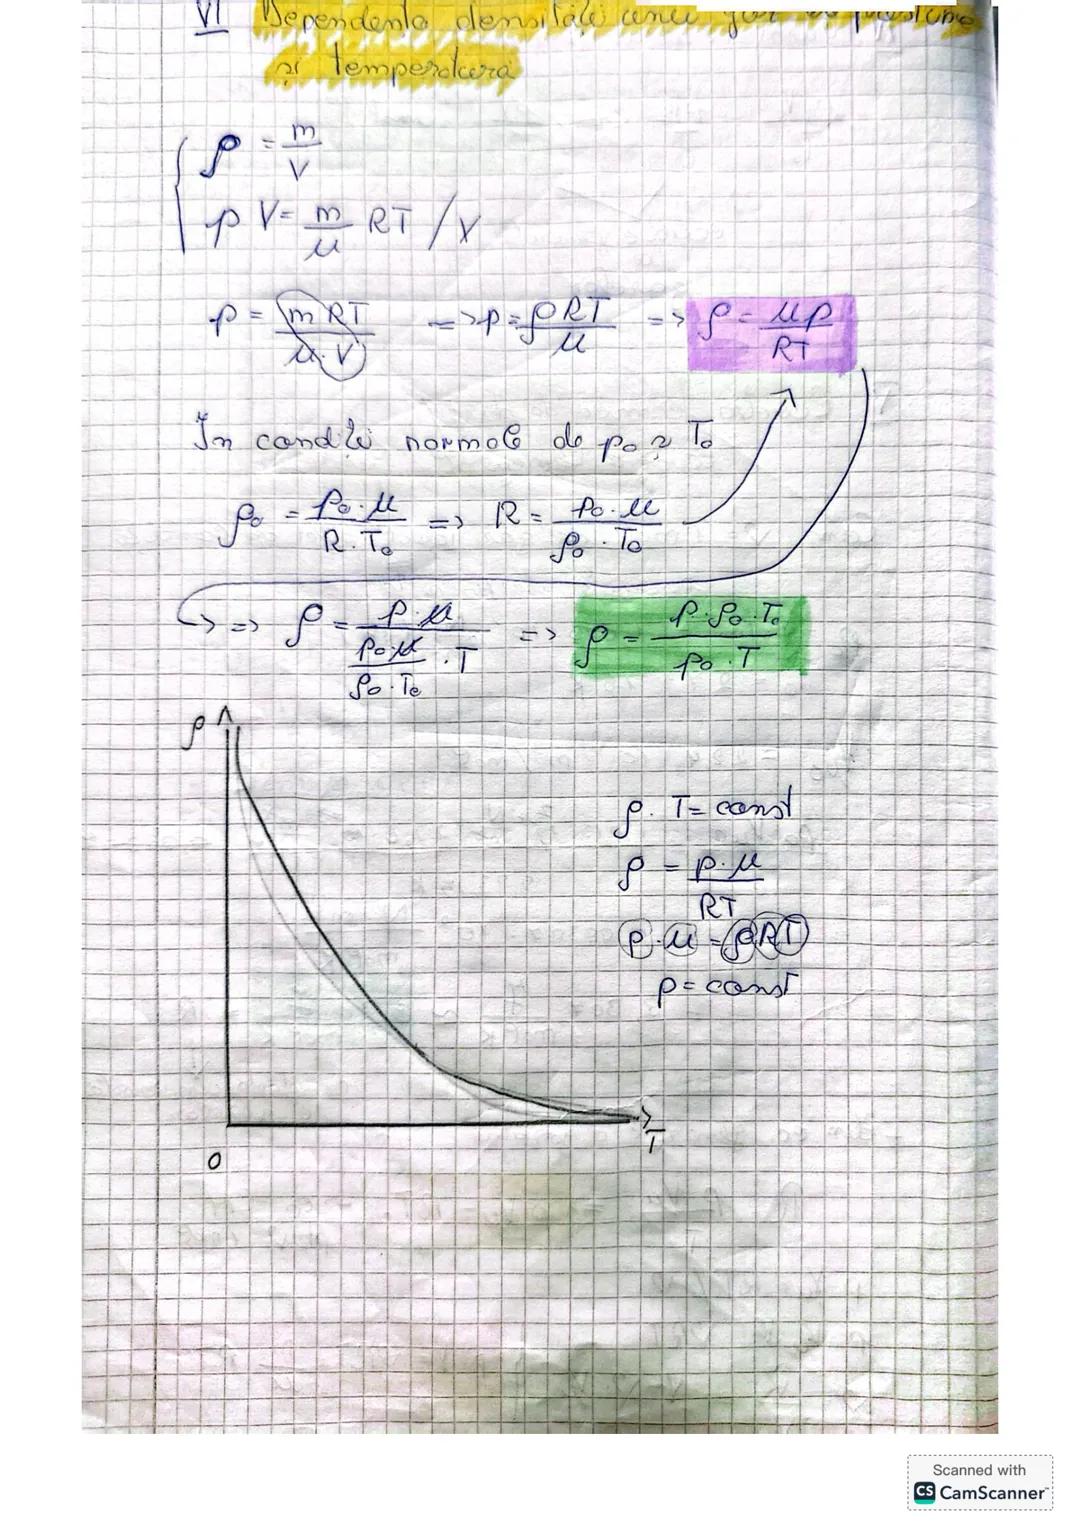 VI Dependența densității unui gaz de presiune
și temperatură
ρ = m/V
pV = m/μ RT /V
p = mRT/μ·V => p = ρRT/μ => ρ = μp/RT
În condiții normale de p₀ și T₀
ρ₀ = p₀·μ/R·T₀ => R = p₀·μ/ρ₀·T₀
=> ρ = p·μ/(p₀·μ/ρ₀·T₀ ·T) => ρ = p·ρ₀·T₀/p₀·T
ρ
ρ·T = const
ρ = p·μ/RT
p·μ = ρRT
p = const
T
0
Scanned with
CS CamScanner